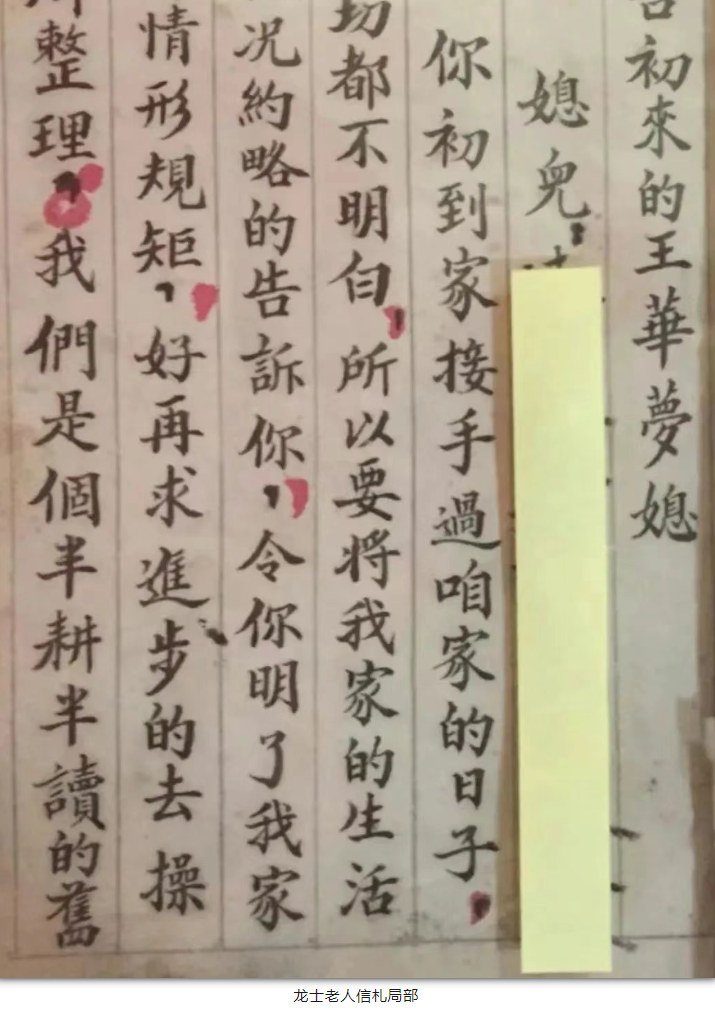 初來的王華夢媳
媳兒
你初到家接手過咱家的日子，
都不明白，所以要將我家的生活
况約略的告訴你，令你明了我家
情形規矩，好再求進步的去操
整理，我們是個半耕半讀的舊
龙士老人信札局部